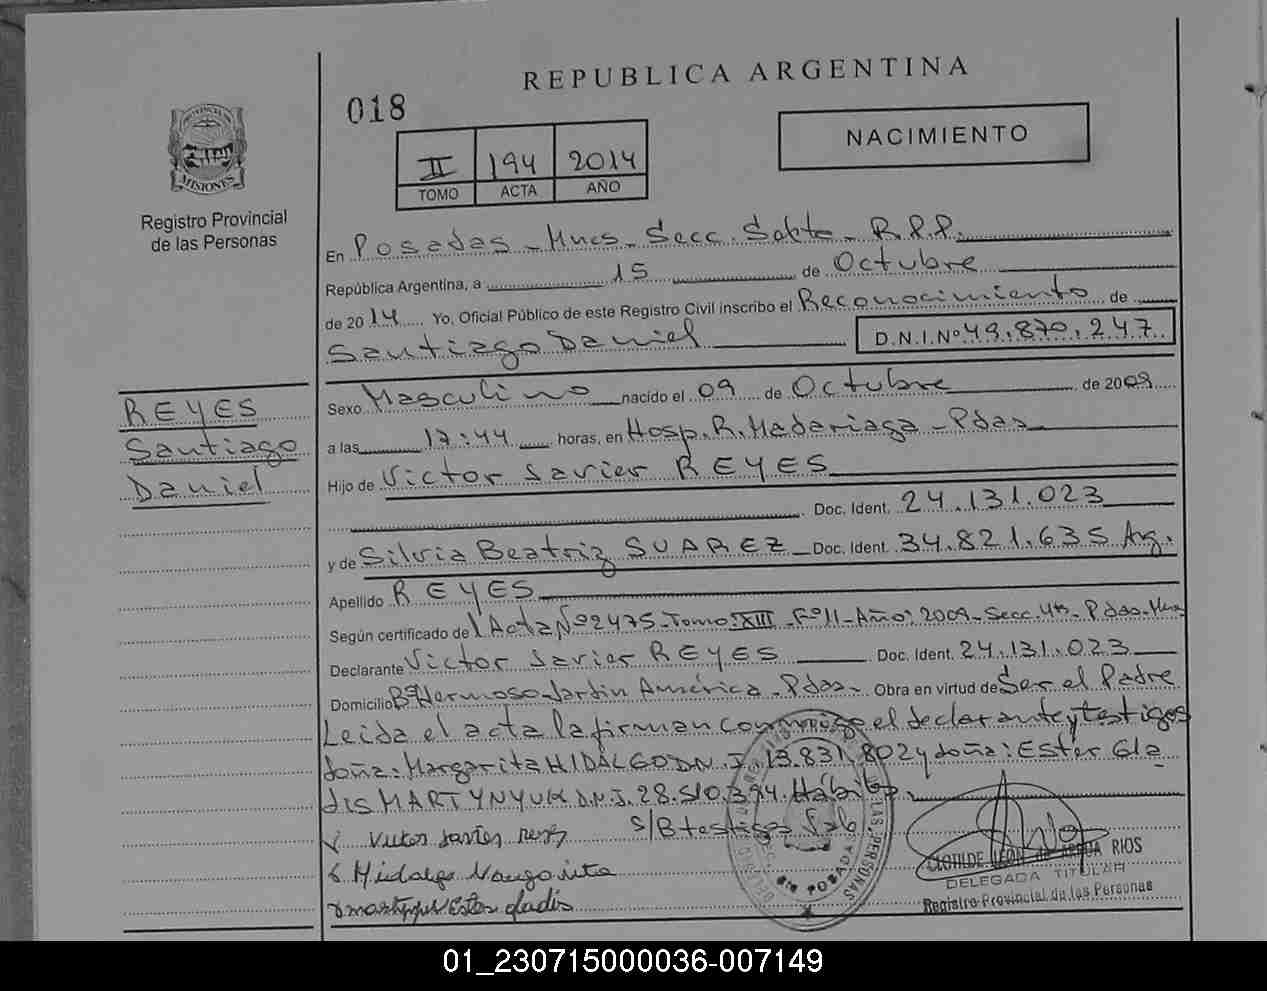 REPUBLICA ARGENTINA
018
NACIMIENTO
II 194 2014
TOMO ACTA AÑO
PROVINCIA DE
MISIONES
Registro Provincial
de las Personas
En Posadas - Mnes - Secc. Sexta - R.P.P.
República Argentina, a 15 de Octubre
de 2014 Yo, Oficial Público de este Registro Civil inscribo el Reconocimiento de
Santiago Daniel D.N.I. Nº 49.870.247
REYES
Santiago
Daniel
Sexo Masculino nacido el 09 de Octubre de 2009
a las 17:44 horas, en Hosp. R. Madariaga - Pdas
Hijo de Victor Javier REYES
Doc. Ident. 24.131.023
y de Silvia Beatriz SUAREZ Doc. Ident. 34.821.635 Arg.
Apellido REYES
Según certificado del Acta Nº 2475 - Tomo: XIII - Fº 11 - Año: 2009 - Secc. 4ta - Pdas - Mnes
Declarante Victor Javier REYES Doc. Ident. 24.131.023
Domicilio Bº Hermoso Jardin América - Pdas - Obra en virtud de Ser el Padre
Leida el acta la firman conmigo el declarante y testigos
doña: Margarita HIDALGO D.N.I. 13.831.802 y doña: Ester Gla
dis MARTYNYUK D.N.I. 28.510.394. Hábiles
S/B testigos
Hidalgo Margarita
Ester Gladis
POSADAS
CLOTILDE LEON RIOS
DELEGADA TITULAR
Registro Provincial de las Personas
01_230715000036-007149